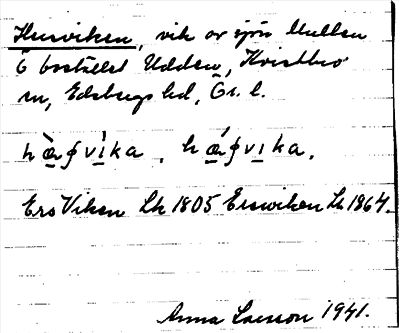 Husviken, vik av sjön Mullsn
Ö bostället Udden, Kvistbro
sn, Edsbergs hd, Ör. l.
Ers Viken Lk 1805 Ersviken Lk 1864.
Anna Larsson 1941.